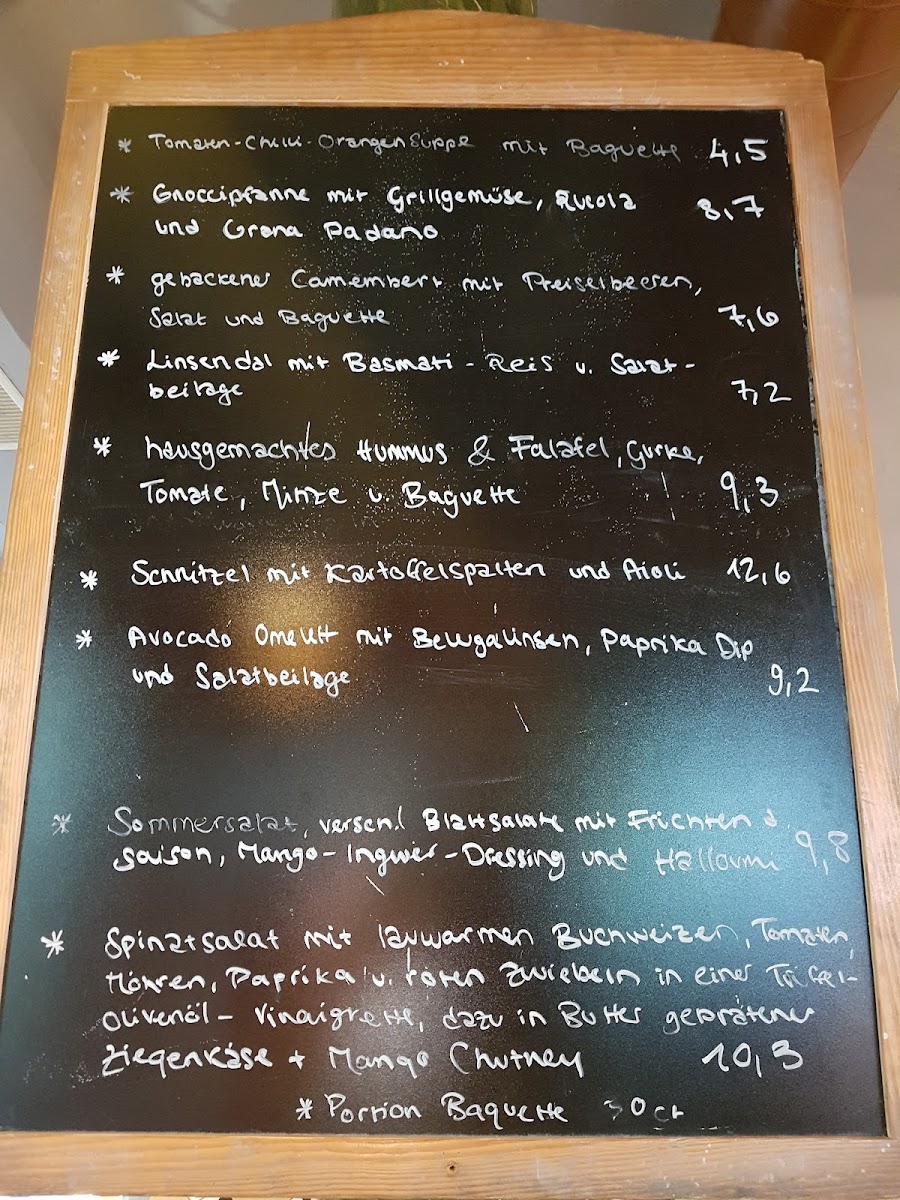 * Tomaten-Chili-Orangen Suppe mit Baguette 4,5
* Gnoccipfanne mit Grillgemüse, Rucola 8,7
und Grana Padano
* gebackener Camembert mit Preiselbeeren,
Salat und Baguette 7,6
* Linsendal mit Basmati-Reis u. Salat-
beilage 7,2
* hausgemachtes Hummus & Falafel, Gurke,
Tomate, Minze u. Baguette 9,3
* Schnitzel mit Kartoffelspalten und Aioli 12,6
* Avocado Omelett mit Belugalinsen, Paprika Dip
und Salatbeilage 9,2
* Sommersalat, versch. Blattsalate mit Früchten d.
Saison, Mango-Ingwer-Dressing und Halloumi 9,8
* Spinatsalat mit lauwarmen Buchweizen, Tomaten,
Möhren, Paprika u. roten Zwiebeln in einer Trüffel-
olivenöl-Vinaigrette, dazu in Butter gebratener
Ziegenkäse + Mango Chutney 10,3
* Portion Baguette 30 ct